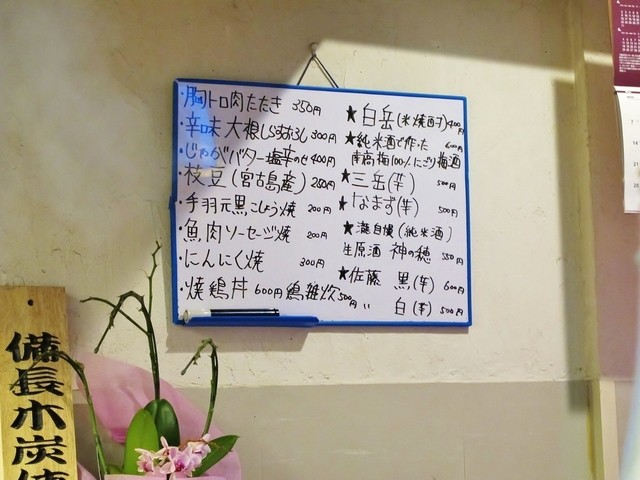 ・胸トロ肉たたき 350円
・辛味大根しらすおろし 300円
・じゃがバター塩辛のせ 400円
・枝豆(宮古島産) 250円
・手羽元黒こしょう焼 200円
・魚肉ソーセージ焼 200円
・にんにく焼 300円
・焼鶏丼 600円 鶏雑炊 500円
★白岳(米焼酎) 400円
★純米酒で作った 600円
南高梅100%にごり梅酒
★三岳(芋) 500円
★なまず(芋) 500円
★瀧自慢(純米酒)
生原酒 神の穂 550円
★佐藤 黒(芋) 600円
〃 白(芋) 500円
備長木炭使